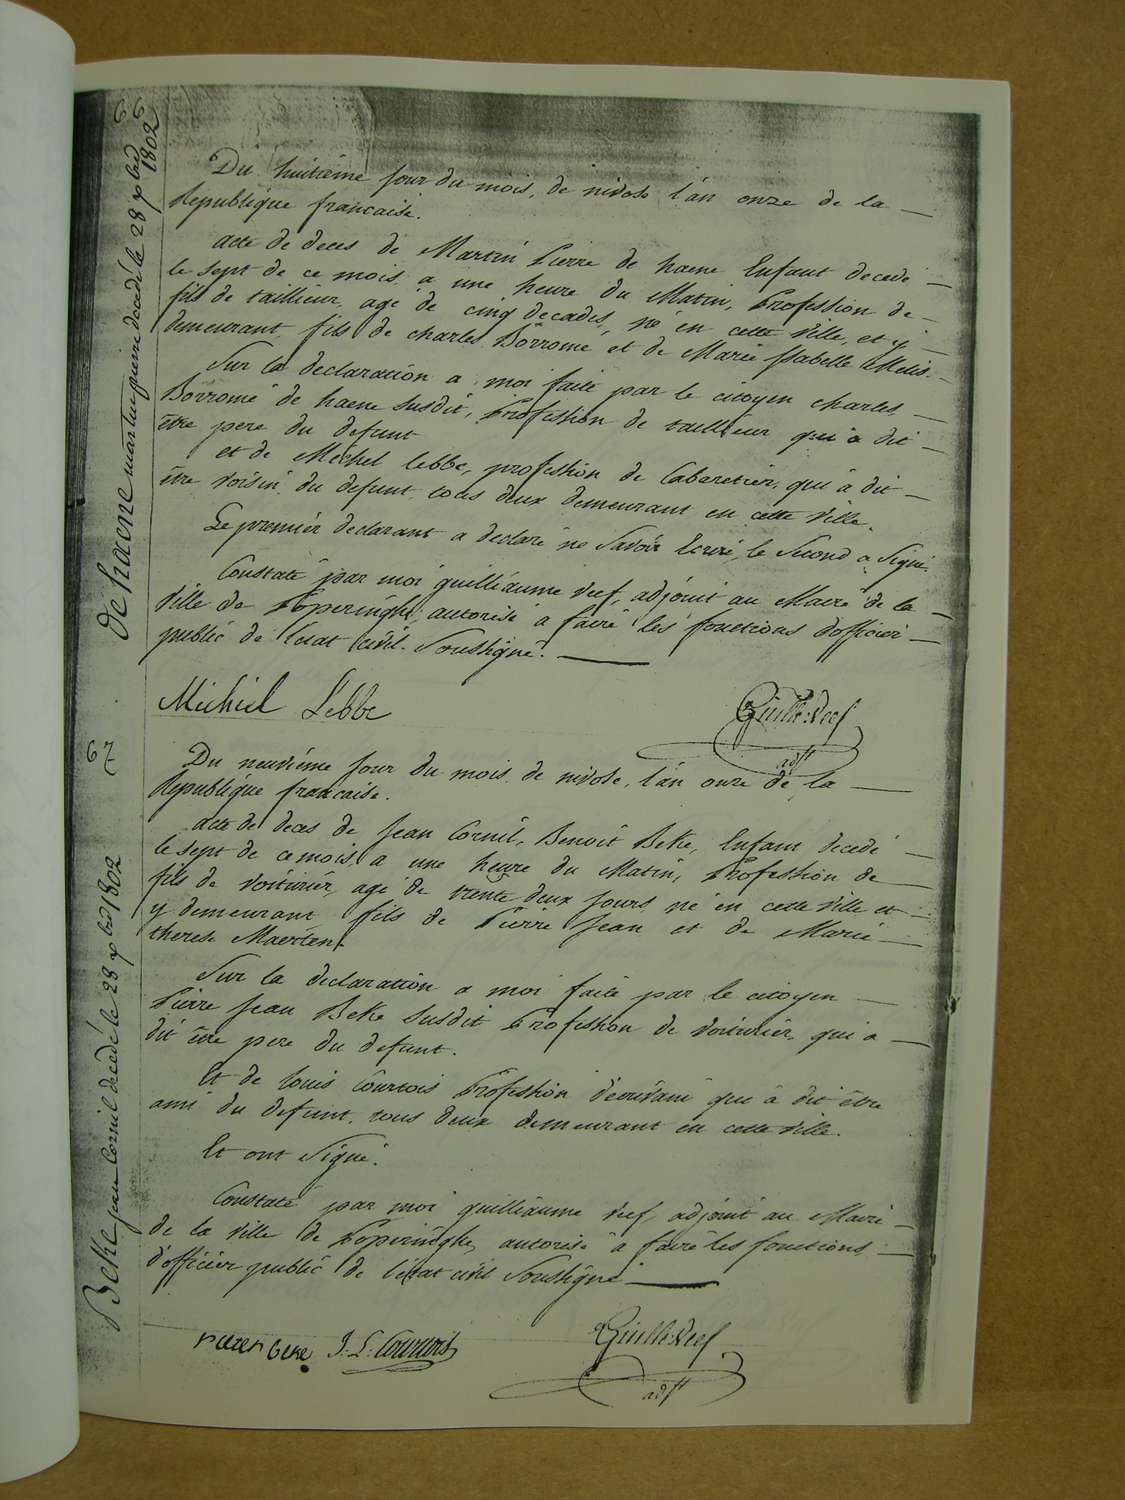 66
de haene martin pierre decedé le 28 xbre 1802
Du huitieme jour du mois, de nivose l'an onze de la
Republique francaise.
acte de deces de Martin Pierre de haene Enfant decedé
le sept de ce mois a une heure du Matin, Profession de
fils de taillieur, agé de cinq decades, né en cette ville, et y
demeurant fils de charles Borromé et de Marie Isabelle Melis.
Sur la declaration a moi faite par le citoyen charles
Borromé de haene susdit, Profession de taillieur qui a dit
être pere du defunt
et de Michel lebbe, profession de Cabaretier, qui à dit
être voisin du defunt, tous deux demeurant en cette ville.
Le premier declarant a declaré ne savoir Ecrire, le second a signé.
Constaté par moi guilliaume veef, adjoint au Maire de la
ville de Poperinghe, autorisé a faire les fonctions d'officier
public de l'etat civil. Soussigné.
Michiel Lebbe
Guille Veef
adjt
67
Beke jean Cornil decedé le 28 xbre 1802
Du neuvième jour du mois de nivose, l'an onze de la
Republique francaise.
acte de deces de Jean Cornil, Benoit Beke, Enfant decedé
le sept de ce mois, a une heure du Matin, Profession de
fils de voiturier, agé de trente deux jours, né en cette ville et
y demeurant fils de Pierre Jean et de Marie
therese Maerten.
Sur la declaration a moi faite par le citoyen
Pierre Jean Beke susdit Profession de voiturier, qui a
dit être pere du defunt.
Et de louis Courtois Profession d'écrivain qui à dit être
ami du defunt, tous deux demeurant en cette ville.
Et ont signé.
Constaté par moi guilliaume veef, adjoint au Maire
de la ville de Poperinghe, autorisé a faire les fonctions
d'officier public de l'etat civil Soussigné
pieter beke J. L. Courtois
Guille Veef
adjt